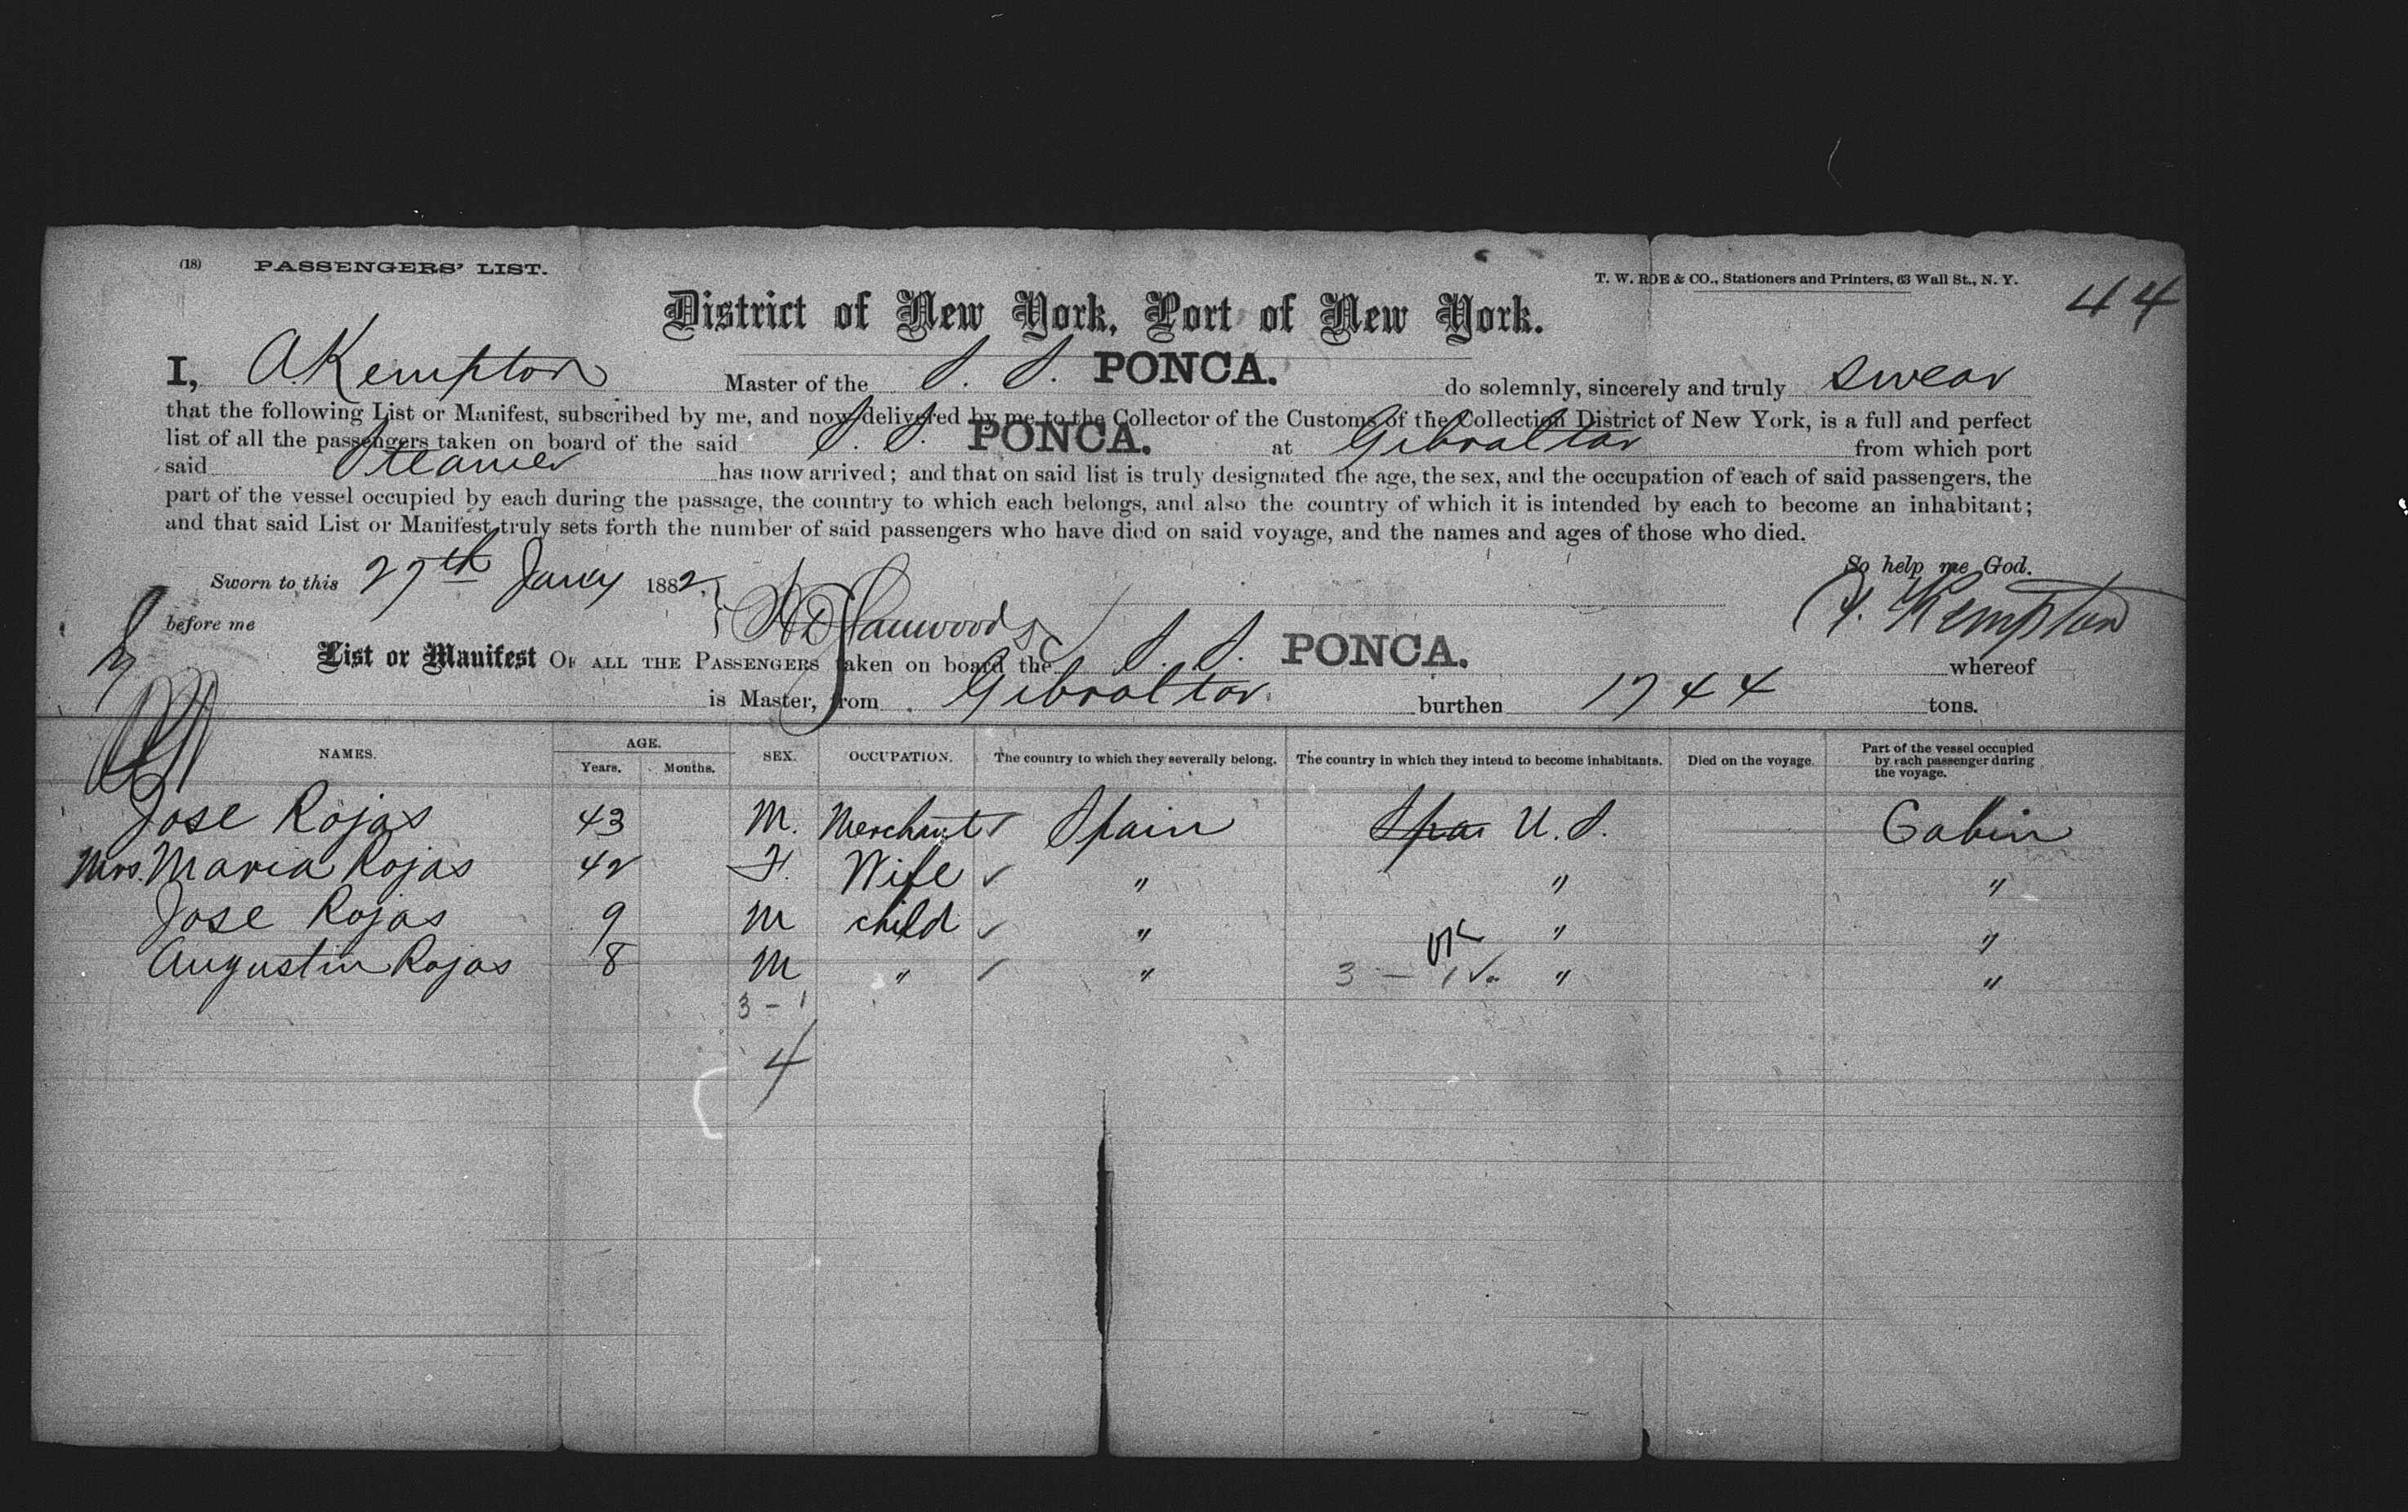 (18) PASSENGERS' LIST.
T. W. ROE & CO., Stationers and Printers, 63 Wall St., N. Y.
44
District of New York, Port of New York.
I, A. Kempton Master of the S. S. PONCA. do solemnly, sincerely and truly swear
that the following List or Manifest, subscribed by me, and now delivered by me to the Collector of the Customs of the Collection District of New York, is a full and perfect
list of all the passengers taken on board of the said S. S. PONCA. at Gibraltar from which port
said Steamer has now arrived; and that on said list is truly designated the age, the sex, and the occupation of each of said passengers, the
part of the vessel occupied by each during the passage, the country to which each belongs, and also the country of which it is intended by each to become an inhabitant;
and that said List or Manifest truly sets forth the number of said passengers who have died on said voyage, and the names and ages of those who died.
So help me God.
Sworn to this 27th Jany 1882.
A. Kempton
before me
List or Manifest OF ALL THE PASSENGERS taken on board the S. S. PONCA. whereof
is Master, from Gibraltar burthen 1744 tons.
NAMES. AGE. Years. Months. SEX. OCCUPATION. The country to which they severally belong. The country in which they intend to become inhabitants. Died on the voyage. Part of the vessel occupied by each passenger during the voyage.
Jose Rojas 43 M. Merchant ✓ Spain Spa U. S. Cabin
Mrs. Maria Rojas 42 F. Wife ✓ " " "
Jose Rojas 9 M child ✓ " " "
Augustin Rojas 8 M " ✓ " 3 — 1 ✓ " "
3 - 1
4